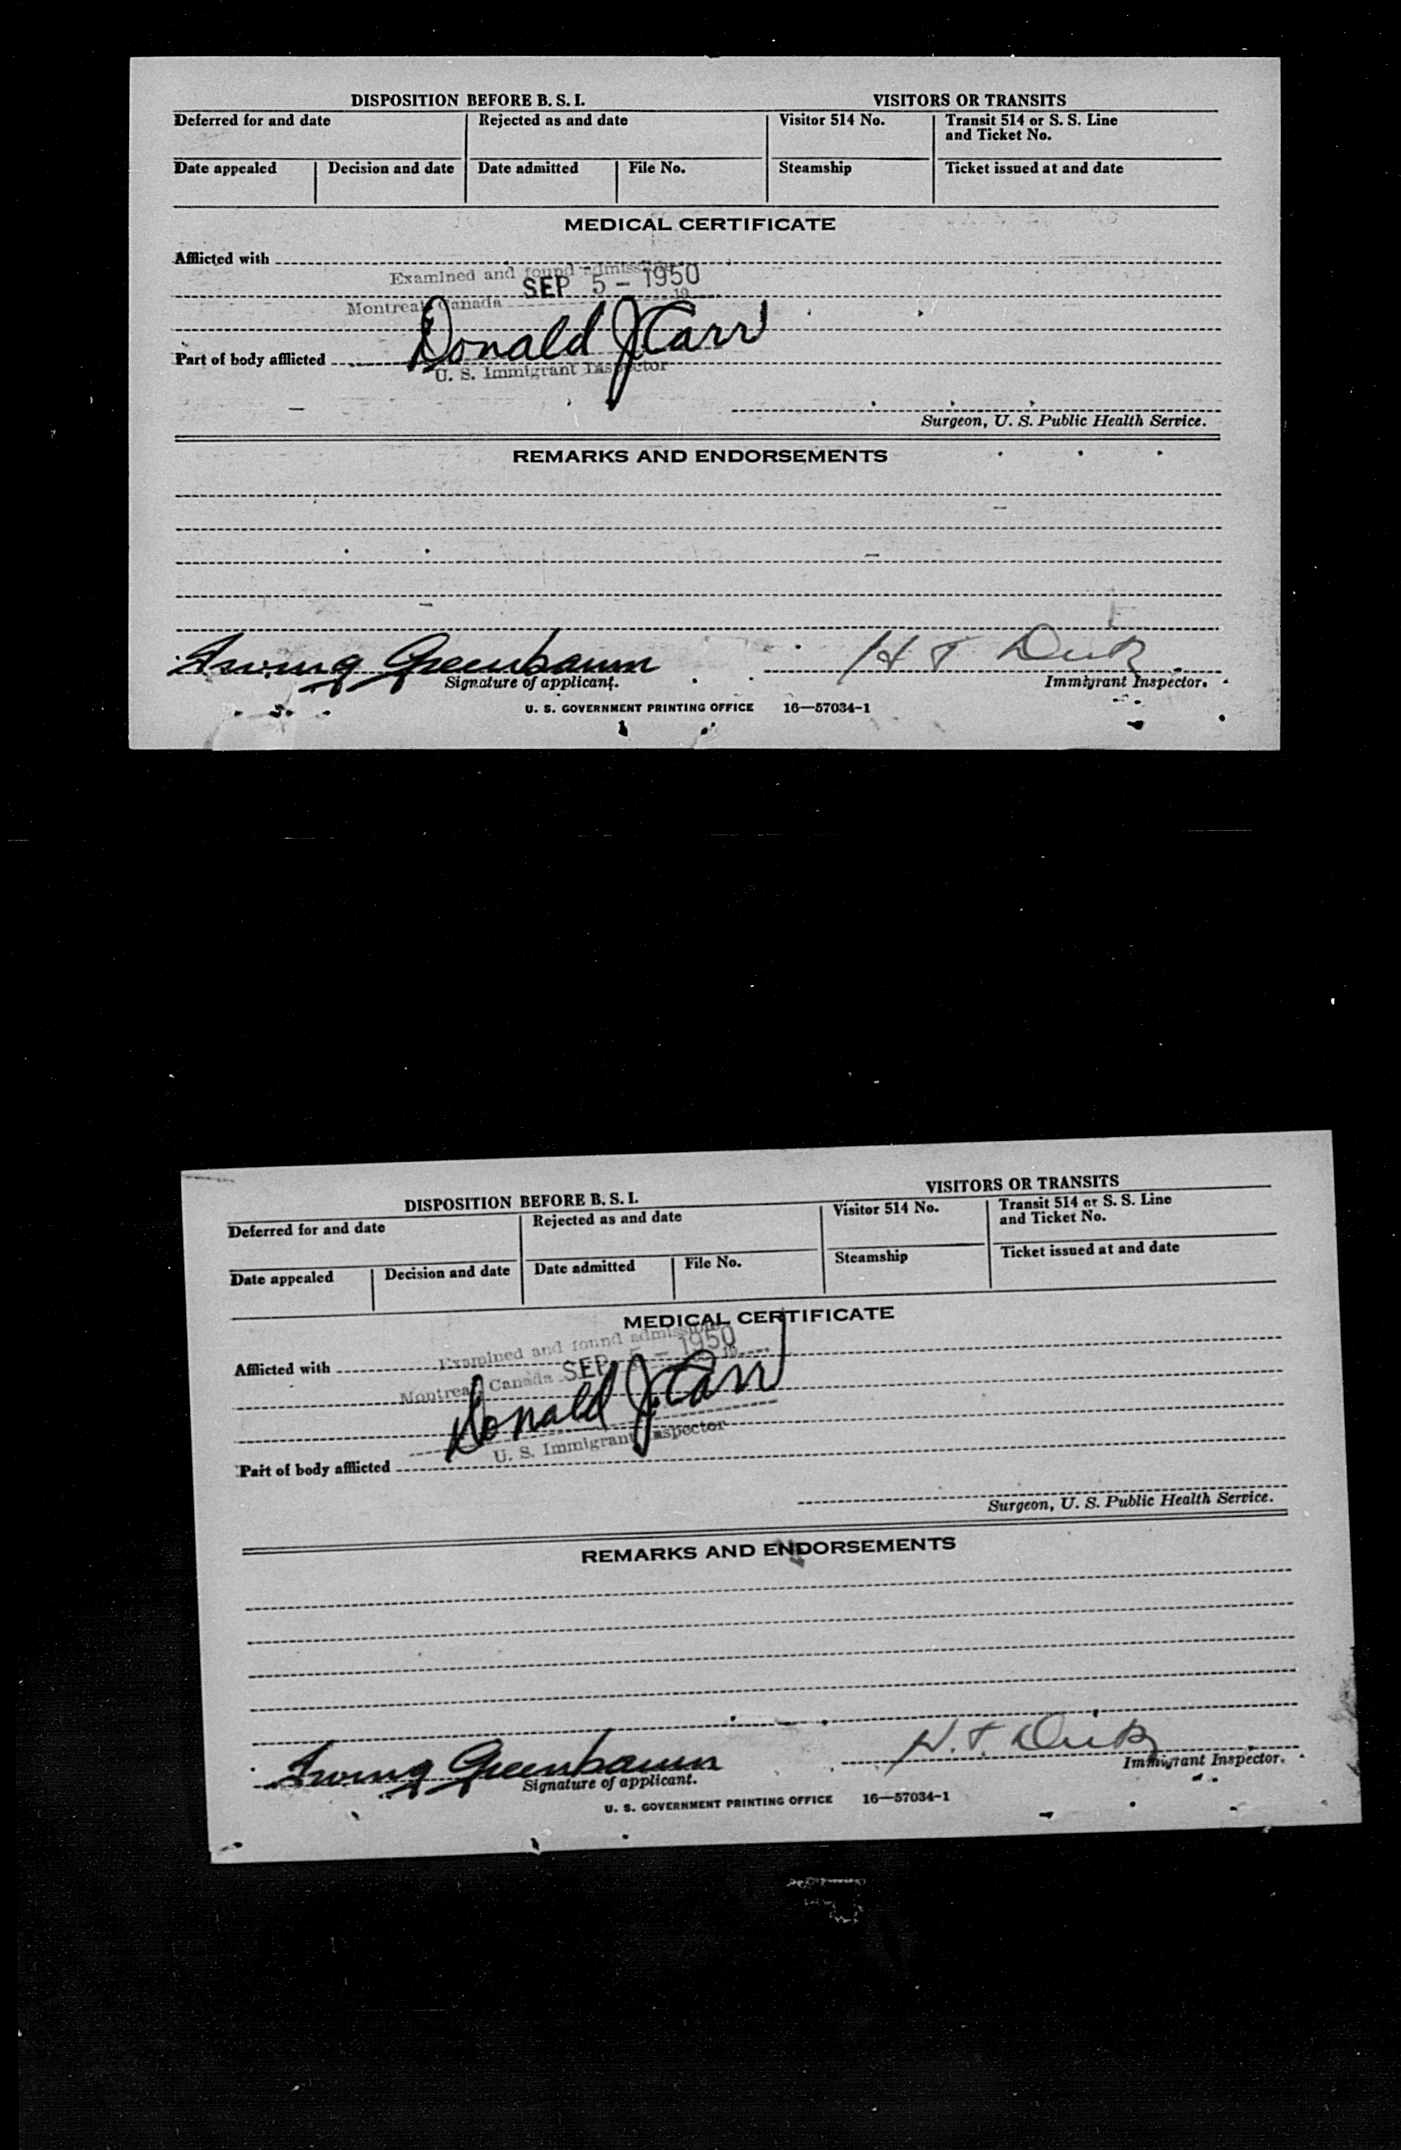 DISPOSITION BEFORE B. S. I. VISITORS OR TRANSITS
Deferred for and date Rejected as and date Visitor 514 No. Transit 514 or S. S. Line
and Ticket No.
Date appealed Decision and date Date admitted File No. Steamship Ticket issued at and date
MEDICAL CERTIFICATE
Afflicted with
Examined and found
SEP 5 - 1950
Montreal Canada 19
Donald J. Carr
Part of body afflicted
U. S. Immigrant Inspector
Surgeon, U. S. Public Health Service.
REMARKS AND ENDORSEMENTS
Irving Greenbaum H T
Signature of applicant. Immigrant Inspector.
U. S. GOVERNMENT PRINTING OFFICE 16—57034-1
DISPOSITION BEFORE B. S. I. VISITORS OR TRANSITS
Deferred for and date Rejected as and date Visitor 514 No. Transit 514 or S. S. Line
and Ticket No.
Date appealed Decision and date Date admitted File No. Steamship Ticket issued at and date
MEDICAL CERTIFICATE
Examined and found
Afflicted with
Montreal Canada SEP 5 - 1950 19
Donald J. Carr
U. S. Immigrant Inspector
Part of body afflicted
Surgeon, U. S. Public Health Service.
REMARKS AND ENDORSEMENTS
Irving Greenbaum H. T.
Signature of applicant. Immigrant Inspector.
U. S. GOVERNMENT PRINTING OFFICE 16—57034-1